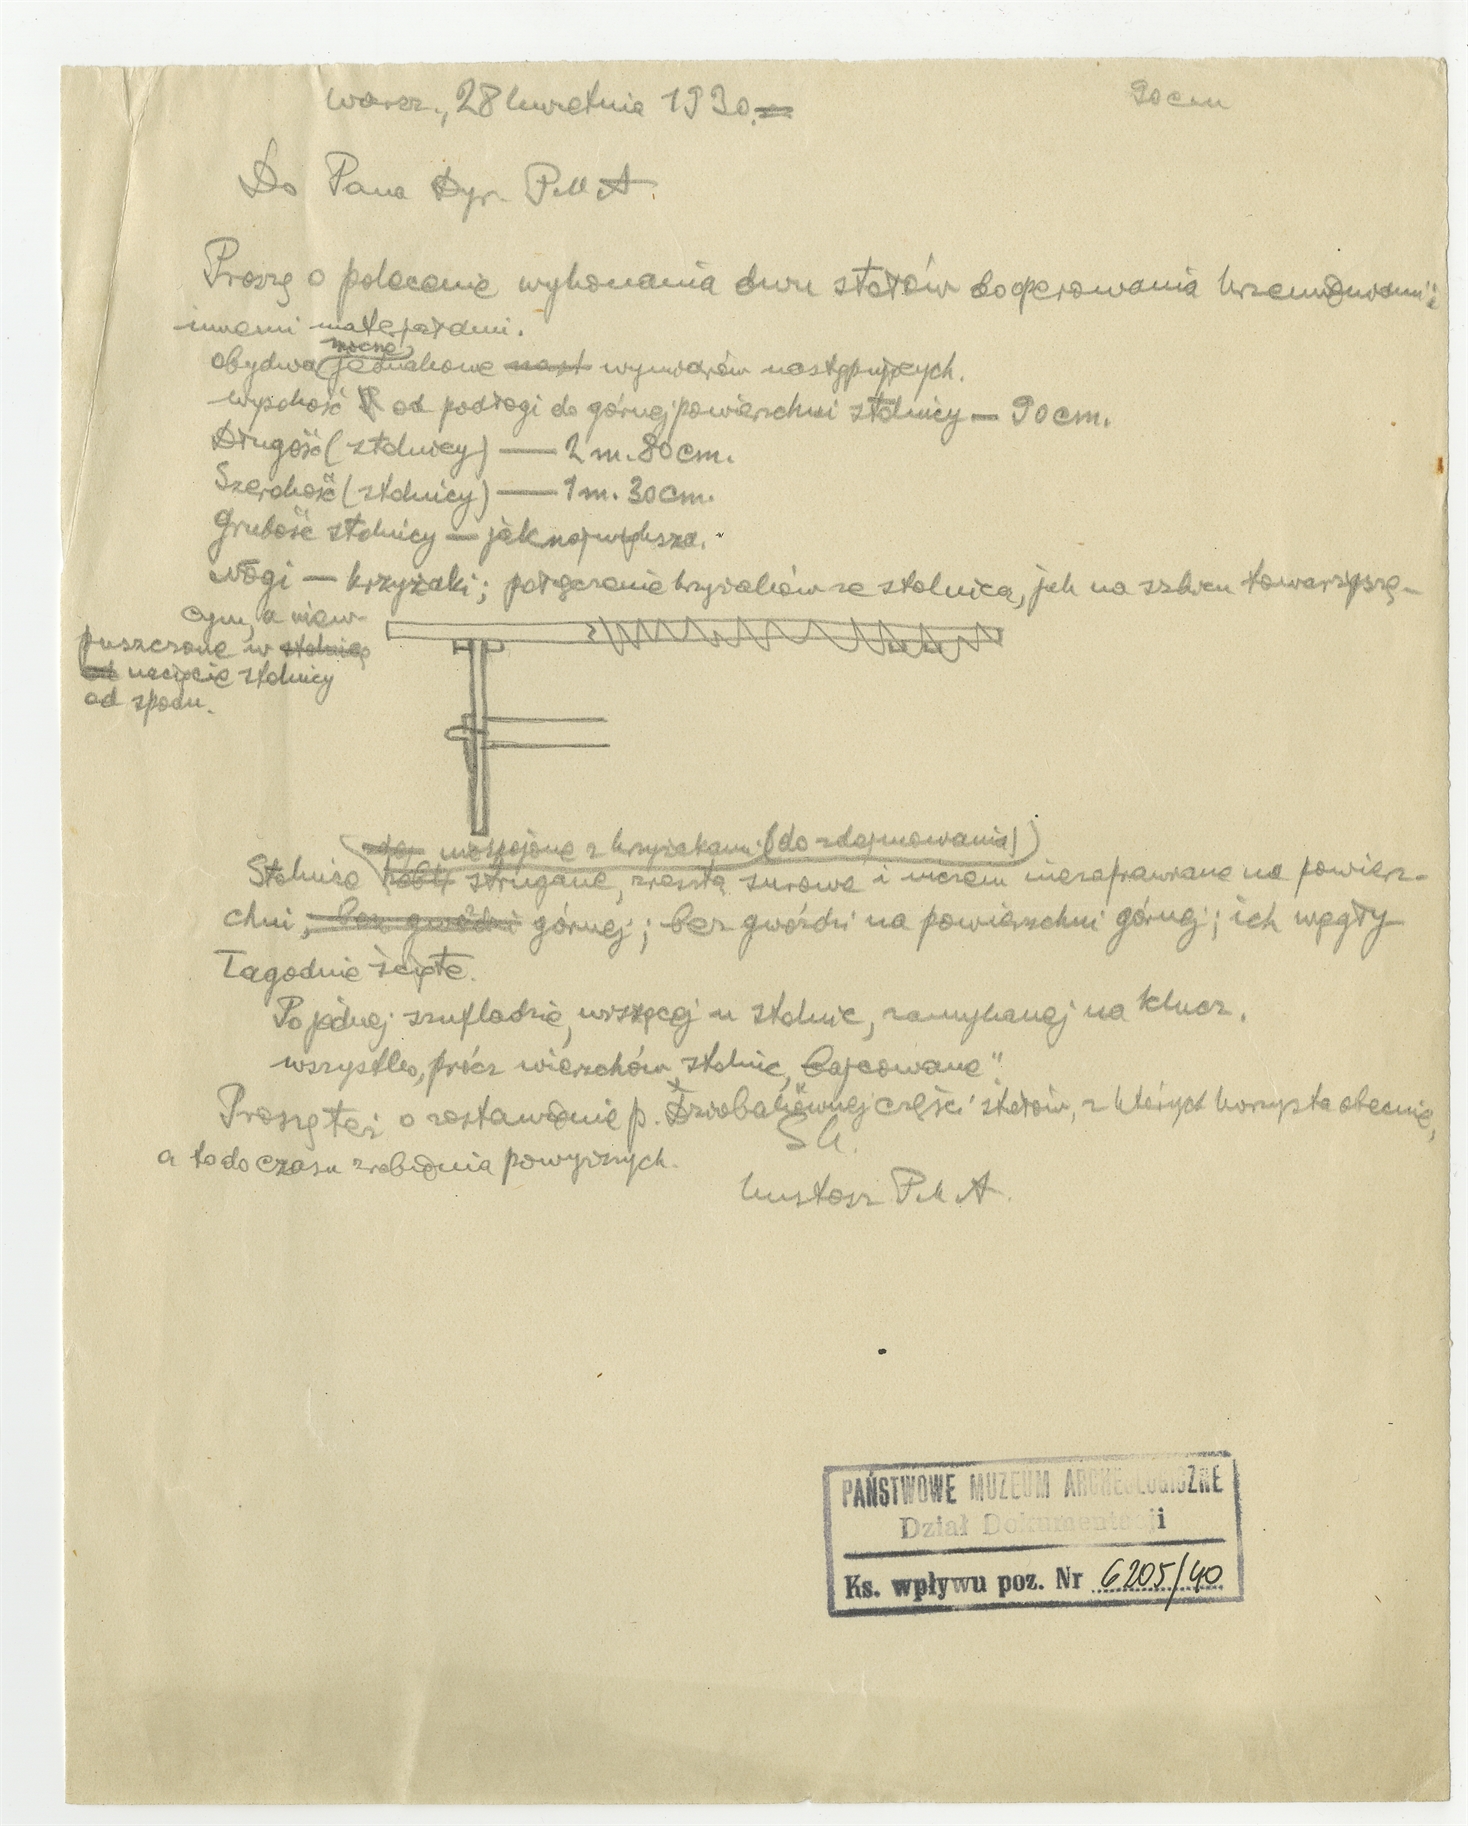 Warsz., 28 kwietnia 1930.
90 cm
Do Pana Dyr. P.M.A.
Proszę o polecenie wykonania dwu stołów do operowania krzemieniami i
innemi materjałami.
mocne
obydwa jednakowe wymiarów następujących.
wysokość od podłogi do górnej powierzchni stolnicy — 90 cm.
Długość (stolnicy) — 2 m. 80 cm.
Szerokość (stolnicy) — 1 m. 30 cm.
Grubość stolnicy — jaknajwiększa.
Nogi — krzyżaki; połączenie krzyżaków ze stolnicą, jak na szkicu towarzyszą-
cym, a niew-
puszczone w stolnicę
nacięcie stolnicy
od spodu.
niespojone z krzyżakami (do zdejmowania)
Stolnice strugane, zresztą surowe i niczem niezaprawiane na powierz-
chni, bez gwoździ górnej; bez gwoździ na powierzchni górnej; ich węgły
łagodnie ścięte.
Po jednej szufladzie, wiszącej u stolnic, zamykanej na klucz.
wszystko, prócz wierzchów stolnic, "bajcowane".
Proszę też o zostawienie p. Dziobakównej części stołów, z których korzysta obecnie,
a to do czasu zrobienia powyższych.
SK.
kustosz P.M.A.
PAŃSTWOWE MUZEUM ARCHEOLOGICZNE
Dział Dokumentacji
Ks. wpływu poz. Nr 6205/40